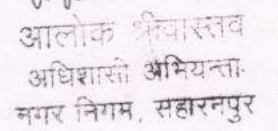 आलोक श्रीवास्तव
अधिशासी अभियन्ता.
नगर निगम, सहारनपुर